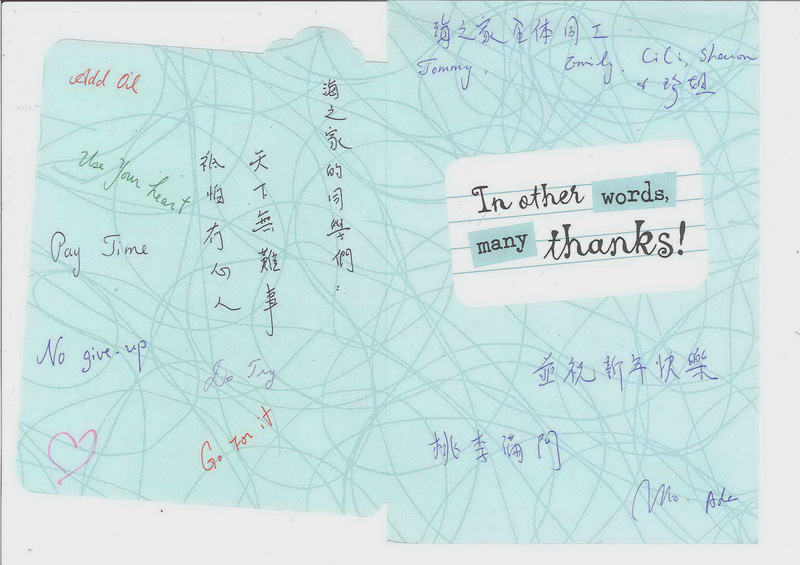 Add Oil
Use Your heart
Pay Time
No give-up
海之家的同學們：
天下無難事
祇怕冇心人
Do Try
Go For it
海之家全体同工
Tommy, Emily, CiCi, Sharon
In other words,
many thanks!
並祝新年快樂
桃李滿門